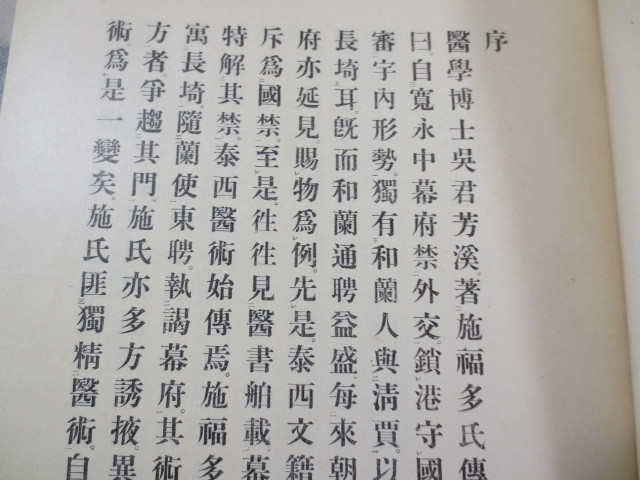 序
醫學博士吳君芳溪。著施福多氏傳
曰。自寬永中幕府禁外交。鎖港守國
審宇內形勢。獨有和蘭人與淸賈。以
長埼耳。旣而和蘭通聘益盛。每來朝
府亦延見。賜物爲例。先是。泰西文籍
斥爲國禁。至是。往往見醫書舶載。幕
特解其禁。泰西醫術始傳焉。施福多
寓長埼。隨蘭使東聘。執謁幕府。其術
方者。爭趨其門。施氏亦多方誘掖。異
術。爲是一變矣。施氏匪獨精醫術。自